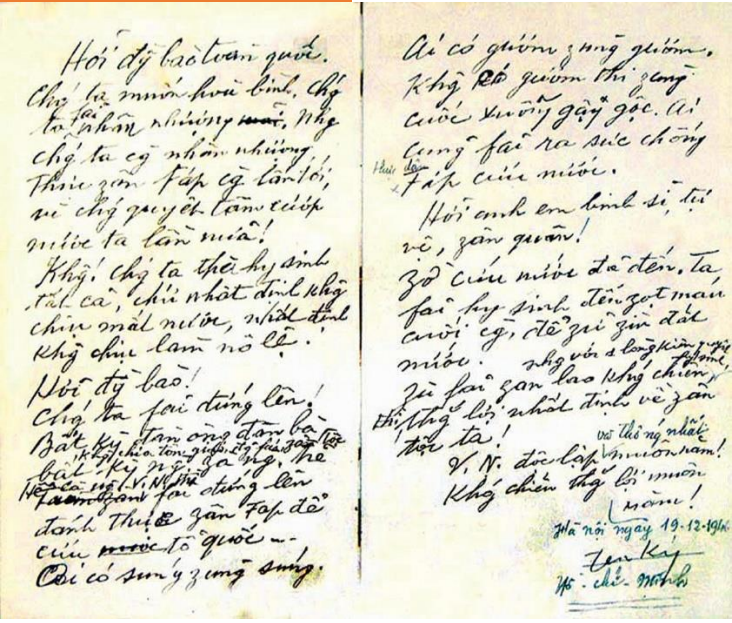 Hỡi đg̀ bào toàn quốc.
Chǵ ta muốn hoà bình. Chǵ
ta fải nhân nhượng. Nhg
chǵ ta cg̀ nhân nhượng
thực zân Fáp cg̀ lấn tới,
vì chǵ quyết tâm cướp
nước ta lần nữa!
Khg! Chǵ ta thà hy sinh
tất cả, chứ nhất định khg
chịu mất nước, nhất định
khg chịu làm nô lệ.
Hỡi đg̀ bào!
Chǵ ta fải đứng lên!
Bất kỳ đàn ông đàn bà
bất kỳ ng̀ già ng̀ trẻ
khg chia tôn giáo, đg fái, zân tộc
Hễ là ng̀ V.N. thì
fải đứng lên
đánh thực zân Fáp để
cứu tổ quốc --
Ai có súng zùng súng.
Ai có gươm zùng gươm.
Khg có gươm thì zùng
cuốc xuổng gậy gộc. Ai
cũng fải ra sức chống
thực dân
Fáp cứu nước.
Hỡi anh em binh sĩ, tự
vệ, zân quân!
Zờ cứu nước đã đến. Ta
fải hy sinh đến zọt máu
cuối cg̀, để zữ zìn đất
nước.
Zù fải zan lao khǵ chiến,
nhg với 1 lòng kiên quyết
hy sinh,
thì
thǵ lợi nhất định về zân
tộc ta!
và thống nhất
V.N. độc lập muôn năm!
Khǵ chiến thǵ lợi muôn
năm!
Hà nội ngày 19-12-1946
Hồ-chí-Minh